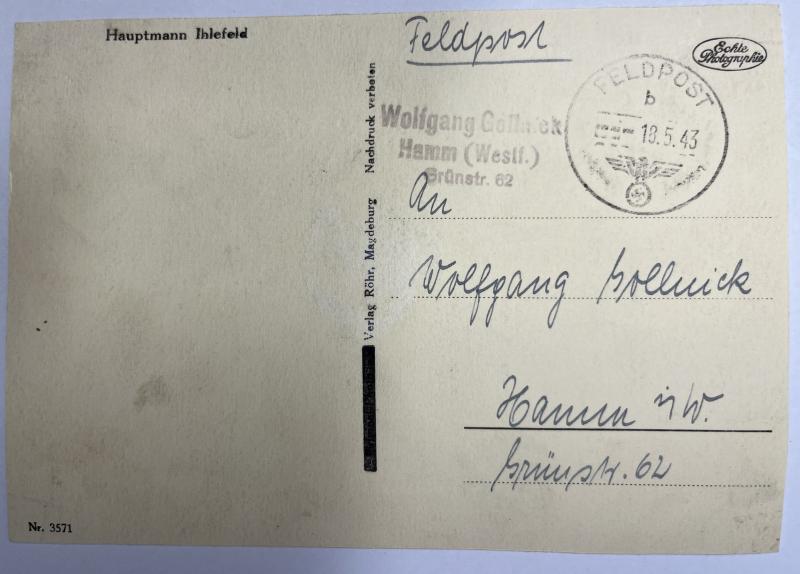 Hauptmann Ihlefeld
Feldpost
Echte
Photographie
FELDPOST
b
18.5.43
Wolfgang Gollnick
Hamm (Westf.)
Grünstr. 62
An
Wolfgang Gollnick
Hamm i/W.
Grünstr. 62
Verlag Röhr, Magdeburg Nachdruck verboten
Nr. 3571